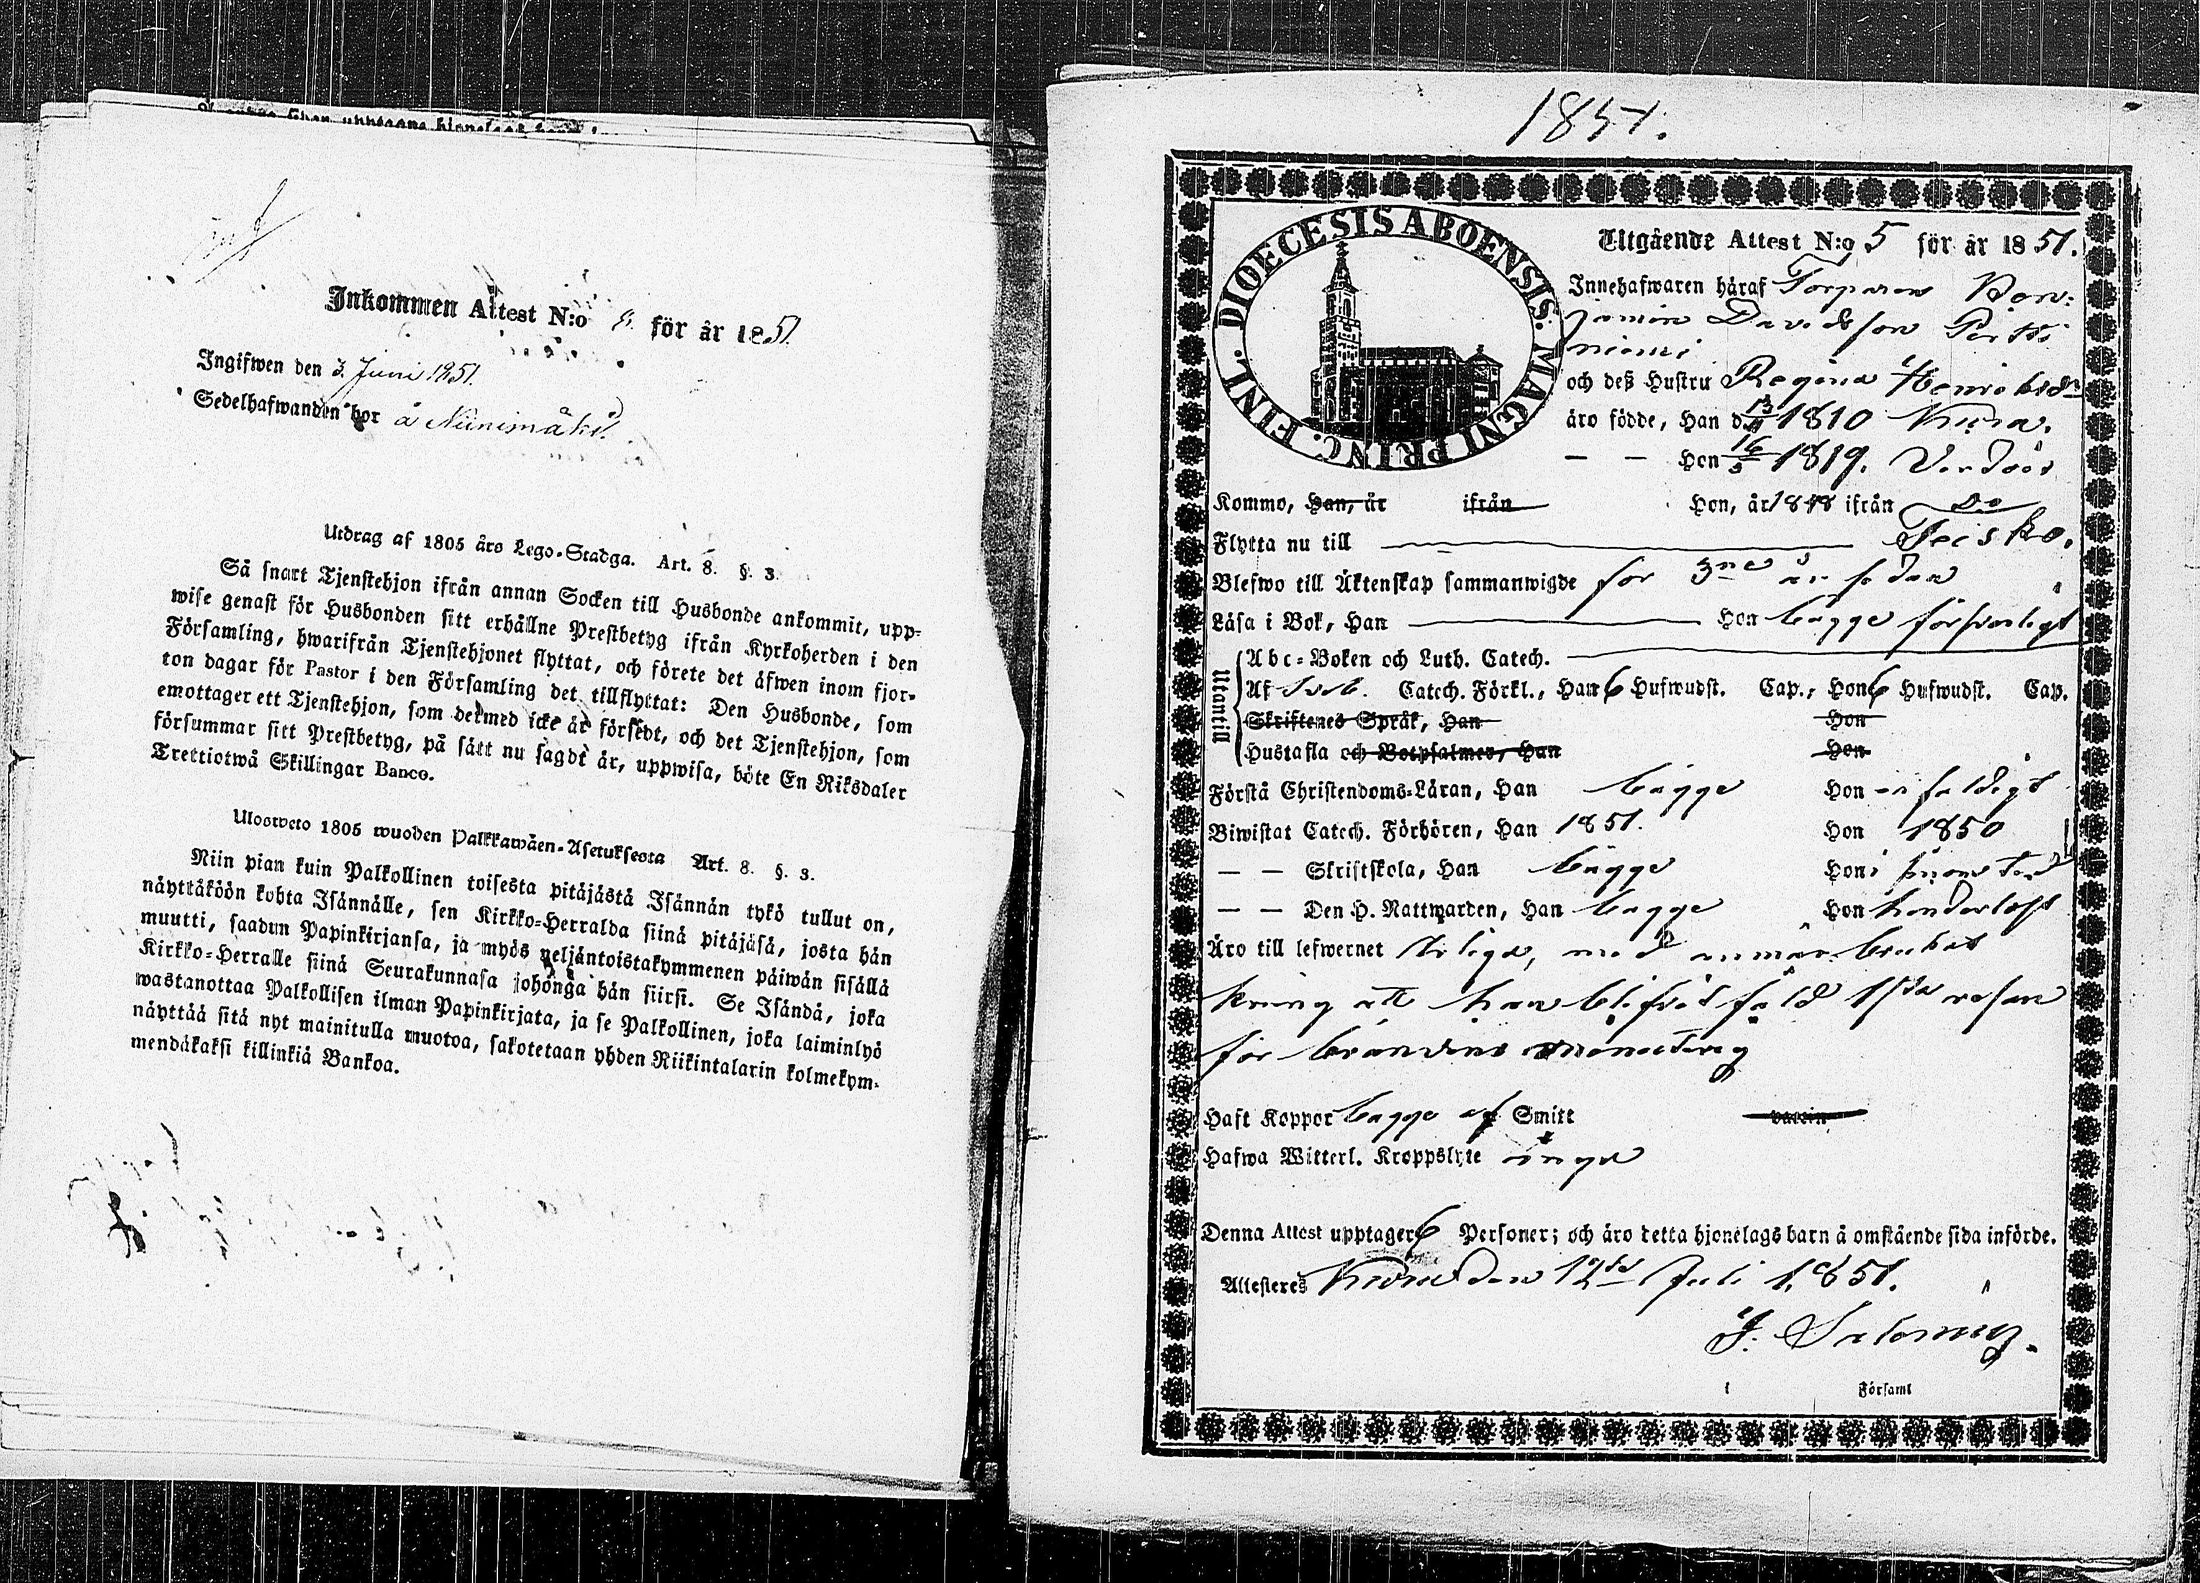 Inkommen Attest N:o 8. för år 1851.
Ingifwen den 3 Juni 1851.
Sedelhafwanden bor å Niinimäki.
Utdrag af 1805 års Lego-Stadga. Art. 8. §. 3.
Så snart Tjenstehjon ifrån annan Socken till Husbonde ankommit, upp-
wise genast för Husbonden sitt erhållne Prestbetyg ifrån Kyrkoherden i den
Församling, hwarifrån Tjenstehjonet flyttat, och förete det äfwen inom fjor-
ton dagar för Pastor i den Församling det tillflyttat: Den Husbonde, som
emottager ett Tjenstehjon, som dermed icke är försedt, och det Tjenstehjon, som
försummar sitt Prestbetyg, på sätt nu sagdt är, uppwisa, böte En Riksdaler
Trettiotwå Skillingar Banco.
Ulosweto 1805 wuoden Palkkawäen-Asetuksesta Art. 8. §. 3.
Niin pian kuin Palkollinen toisesta pitäjästä Isännän tykö tullut on,
näyttäköön kohta Isännälle, sen Kirkko-Herralda siinä pitäjäsä, josta hän
muutti, saadun Papinkirjansa, ja myös neljäntoistakymmenen päiwän sisällä
Kirkko-Herralle siinä Seurakunnasa johonga hän siirsi. Se Isändä, joka
wastanottaa Palkollisen ilman Papinkirjata, ja se Palkollinen, joka laiminlyö
näyttää sitä nyt mainitulla muotoa, sakotetaan yhden Riikintalarin kolmekym-
mendäkaksi killinkiä Bankoa.
1851.
DIOECESIS ABOENSIS. MAGNI PRINC. FINL.
Utgående Attest N:o 5 för år 1851.
Innehafwaren häraf Torparen Ben-
jamin Davidsson Pertti
niemi
och deß Hustru Regina Henriksdr
äro födde, Han d. 13/11 1810 Kuru.
— — Hon 16/5 1819. Verdois
Kommo, Han, år ifrån Hon, år 1848 ifrån Do
Flytta nu till Teisko.
Blefwo till Äktenskap sammanwigde för 3ne år sedan
Läsa i Bok, Han Hon bägge försvarligt
Utantill
Abc-Boken och Luth. Catech.
Af Sveb. Catech. Förkl., Han 6 Hufwudst. Cap., Hon 6 Hufwudst. Cap.
Skriftenes Språk, Han Hon
Hustafla och Botpsalmer, Han Hon
Förstå Christendoms-Läran, Han bägge Hon enfaldigt
Biwistat Catech. Förhören, Han 1851. Hon 1850
— — Skriftskola, Han bägge Hon
— — Den H. Nattwarden, Han bägge Hon hinderlöst
Äro till lefwernet ärliga, med anmär-
kning att han blifvit fäld 1sta resan
för bränvins
Haft Koppor bägge af Smitt vaccin
Hafwa Witterl. Kroppslyte inga
Denna Attest upptager 6 Personer; och äro detta hjonelags barn å omstående sida införde.
Attesteres Kuru den 12te Juli 1851.
i Församl